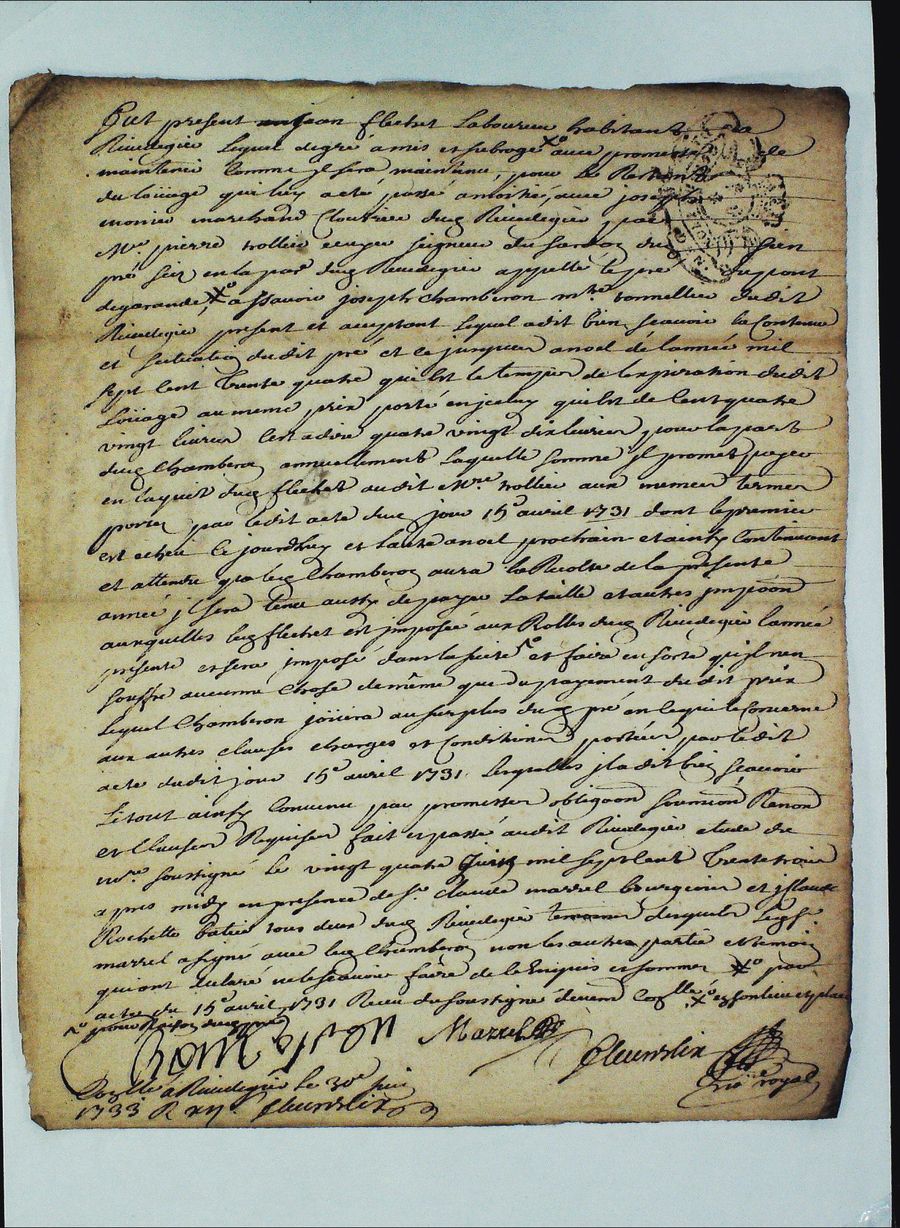 Fut present Jean flechet Laboureur habitant de
Rivedegier lequel de gré a mis et subrogé avec promesse de
maintenir comme Il sera maintenu, pour Le Restant
du loüage qui luy acté passé amoitié, avec joseph
monier marchand Cloutier dud Rivedegier par
Mre pierre rollin ecuyer seigneur du un sien
pré seiz en la par dud Rivedegier appellé le pré du pont
degarande, a sçavoir joseph chamberon mtre tonnellier dudit
Rivedegier present et acceptant Lequel a dit bien sçavoir la Contenue
et scituation dudit pré et ce jusques a noel de lannée mil
sept Cent Trente quatre qui Est le temps de l'expiration dudit
Loüage au meme prix porté en jceluy qui Est de Cent quatre
vingt livres Cest a dire quatre vingt dix livres pour la part
dud Chamberon annuellement Laquelle somme Il promet payer
en laquit dud flechet audit Mre rollin aux memes termes
portés par ledit acte dud jour 15e avril 1731 dont le premier
est echeu Ce jourdhuy et lautre a noel prochain et ainsy Continuant
et attendu que led Chamberon aura la Recolte de la presente
année jl sera tenu aussy de payer La taille et autres jmpoons
auxquelles led flechet est jmposée aux Rolles dud Rivedegier lannée
presente et sera jmposé dans la suite et faira en sorte qu'jl n'en
souffre aucune Chose de même que du payement dudit prix
Lequel Chamberon joüira au surplus dud pré en ce qui le Concerne
aux autres clauses charges et Conditions portées par le dit
acte dudit jour 15e avril 1731 Lesquelles jl a dit bien sçavoir
Le tout ainsy Convenu par promesses obligaon soumion Renon
et Clauses Requises fait et passé audit Rivedegier etude du
nore soussigné Le vingt quatre Juin mil sept Cent Trente trois
apres midy en presence de Sr Claude marrel bourgeois et Claude
Rochette batier tous deux dud Rivedegier temoins desquels Led Sr
marrel a signé avec led Chamberon non les autres partie et temoin
qui ont declaré ne le sçavoir faire de ce Enquis et sommés par
acte du 15e avril 1731 Receu du soussigné devenu Coollé en son lieu et place
pour Raison dud pré
Chamberon Marrel
Fleurdelix
nore royal
Coollé a Rivedegier le 30e juin
1733 R xij s Fleurdelix